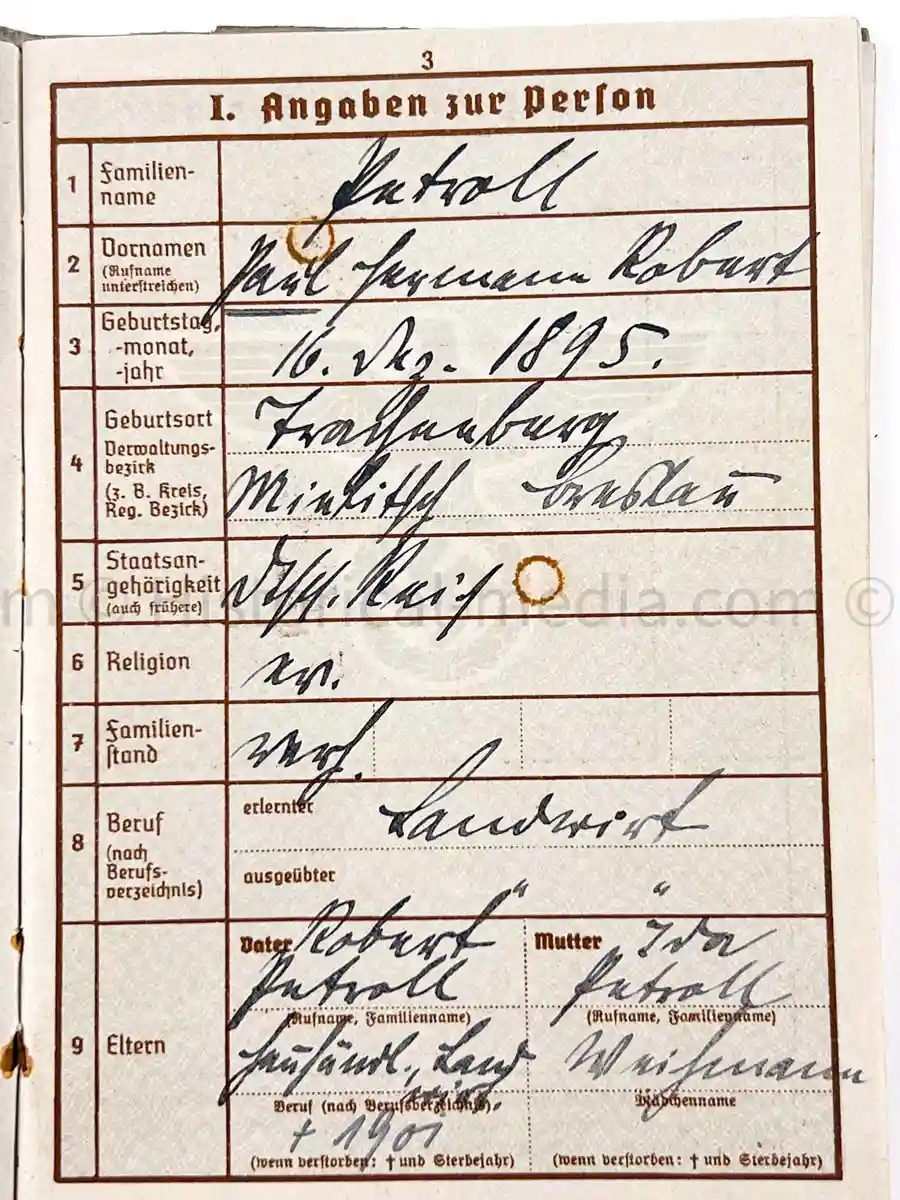 3
I. Angaben zur Person
1 Familien-
name
Petroll
2 Vornamen
(Rufname
unterstreichen)
Paul Hermann Robert
3 Geburtstag,
-monat,
-jahr
16. Dez. 1895.
4 Geburtsort
Verwaltungs-
bezirk
(z. B. Kreis,
Reg. Bezirk)
Trachenberg
Militsch Breslau
5 Staatsan-
gehörigkeit
(auch frühere)
Dtsch. Reich
6 Religion
ev.
7 Familien-
stand
verh.
8 Beruf
(nach
Berufs-
verzeichnis)
erlernter Landwirt
ausgeübter " "
9 Eltern
Vater Robert
Petroll
(Rufname, Familienname)
Land
wirt.
Beruf (nach Berufsverzeichnis)
+ 1901
(wenn verstorben: † und Sterbejahr)
Mutter Ida
Petroll
(Rufname, Familienname)
Mädchenname
(wenn verstorben: † und Sterbejahr)
media.com ©